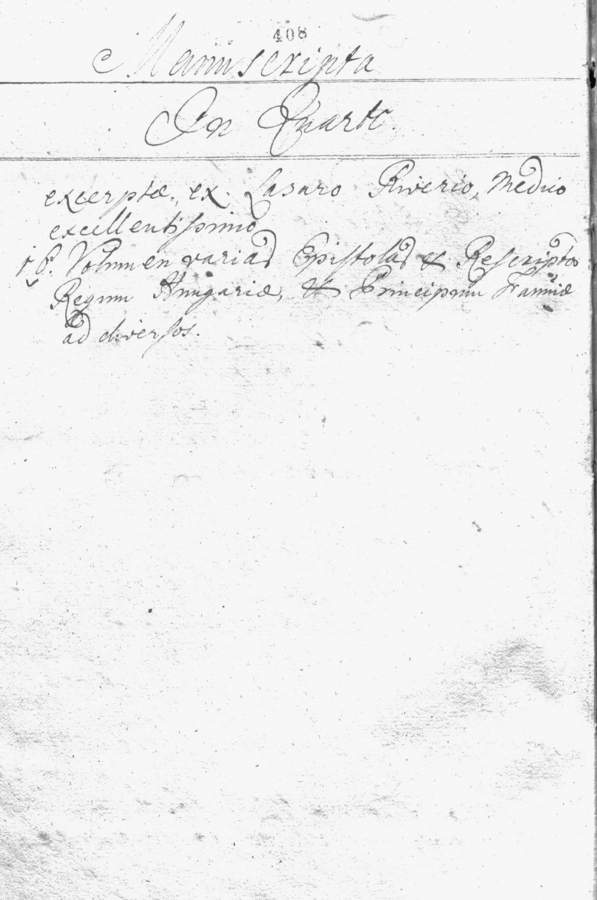 408
Manuscripta
In Quarto.
excerptæ, ex Lasaro Riverio, Medico
excellentissimo
16. Volumen varias Epistolas & Rescripta
Regum Hungariæ, & Principum
ad diversos.